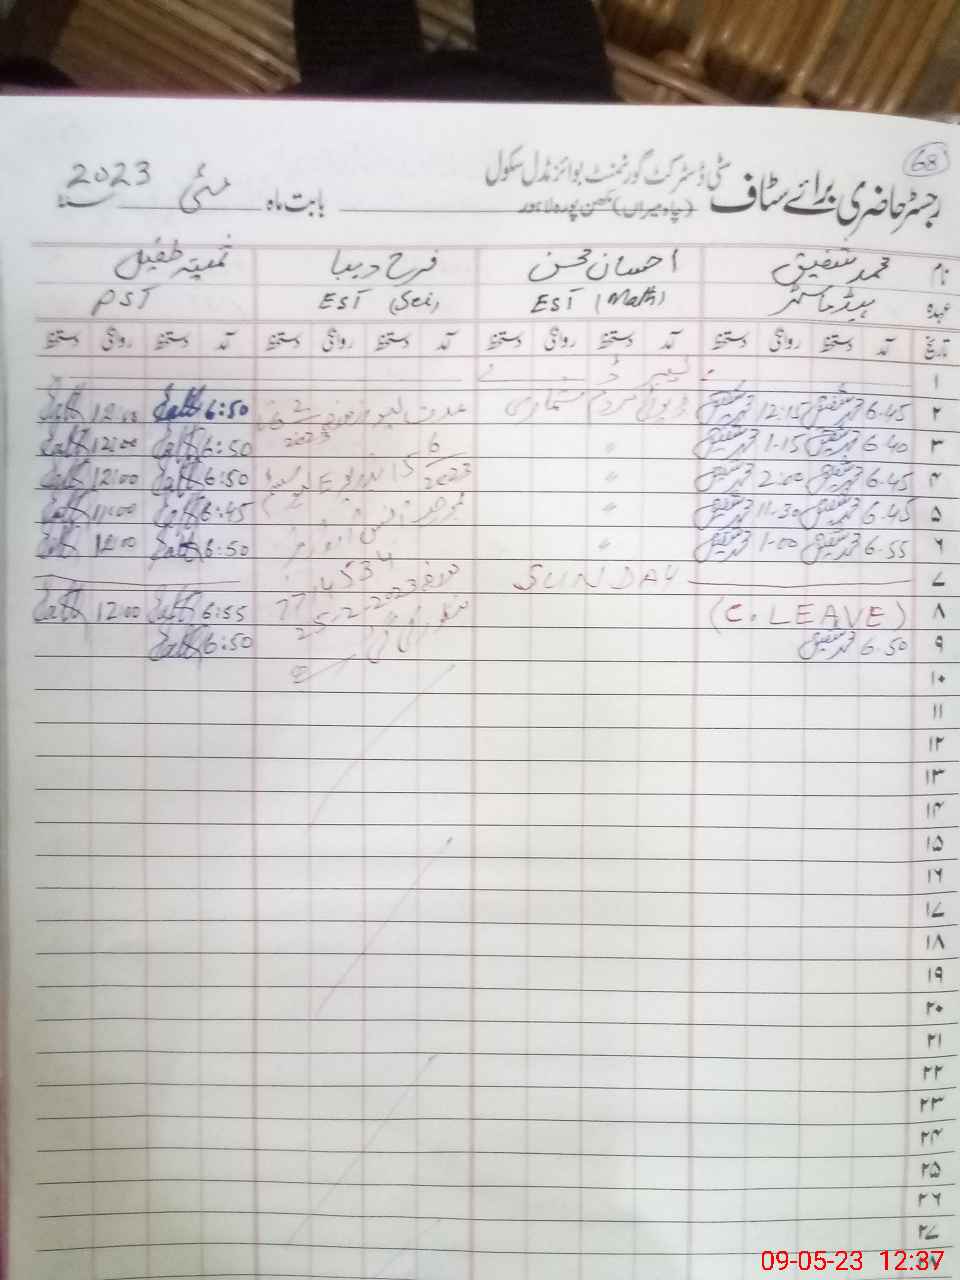 68
رجسٹر حاضری برائے سٹاف سٹی ڈسٹرکٹ گورنمنٹ بوائز مڈل سکول
(چاہ میراں) مکھن پورہ لاہور بابت ماہ مئی 2023
نام محمد شفیق احسان محسن فرح دیبا ثمینہ طفیل
عہدہ ہیڈ ماسٹر EST (Math) EST (Sci) PST
تاریخ آمد دستخط روانگی دستخط آمد دستخط روانگی دستخط آمد دستخط روانگی دستخط آمد دستخط روانگی دستخط
۱ لیبر ڈے
۲ 6.45 محمد شفیق 12.15 محمد شفیق ڈیوٹی مردم شماری عدت لیو 6:50 12:00
۳ 6.40 محمد شفیق 1.15 محمد شفیق " 6 2023 6:50 12:00
۴ 6.45 محمد شفیق 2:00 محمد شفیق " 15 6:50 12:00
۵ 6.45 محمد شفیق 11.30 محمد شفیق " 6:45 11:00
۶ 6.55 محمد شفیق 1.00 محمد شفیق " 6:50 12:00
۷ SUNDAY 7714534
۸ (C. LEAVE) 25-2-2023 6:55 12:00
۹ 6.50 محمد شفیق 6:50
۱۰
۱۱
۱۲
۱۳
۱۴
۱۵
۱۶
۱۷
۱۸
۱۹
۲۰
۲۱
۲۲
۲۳
۲۴
۲۵
۲۶
۲۷
۲۸
09-05-23 12:37